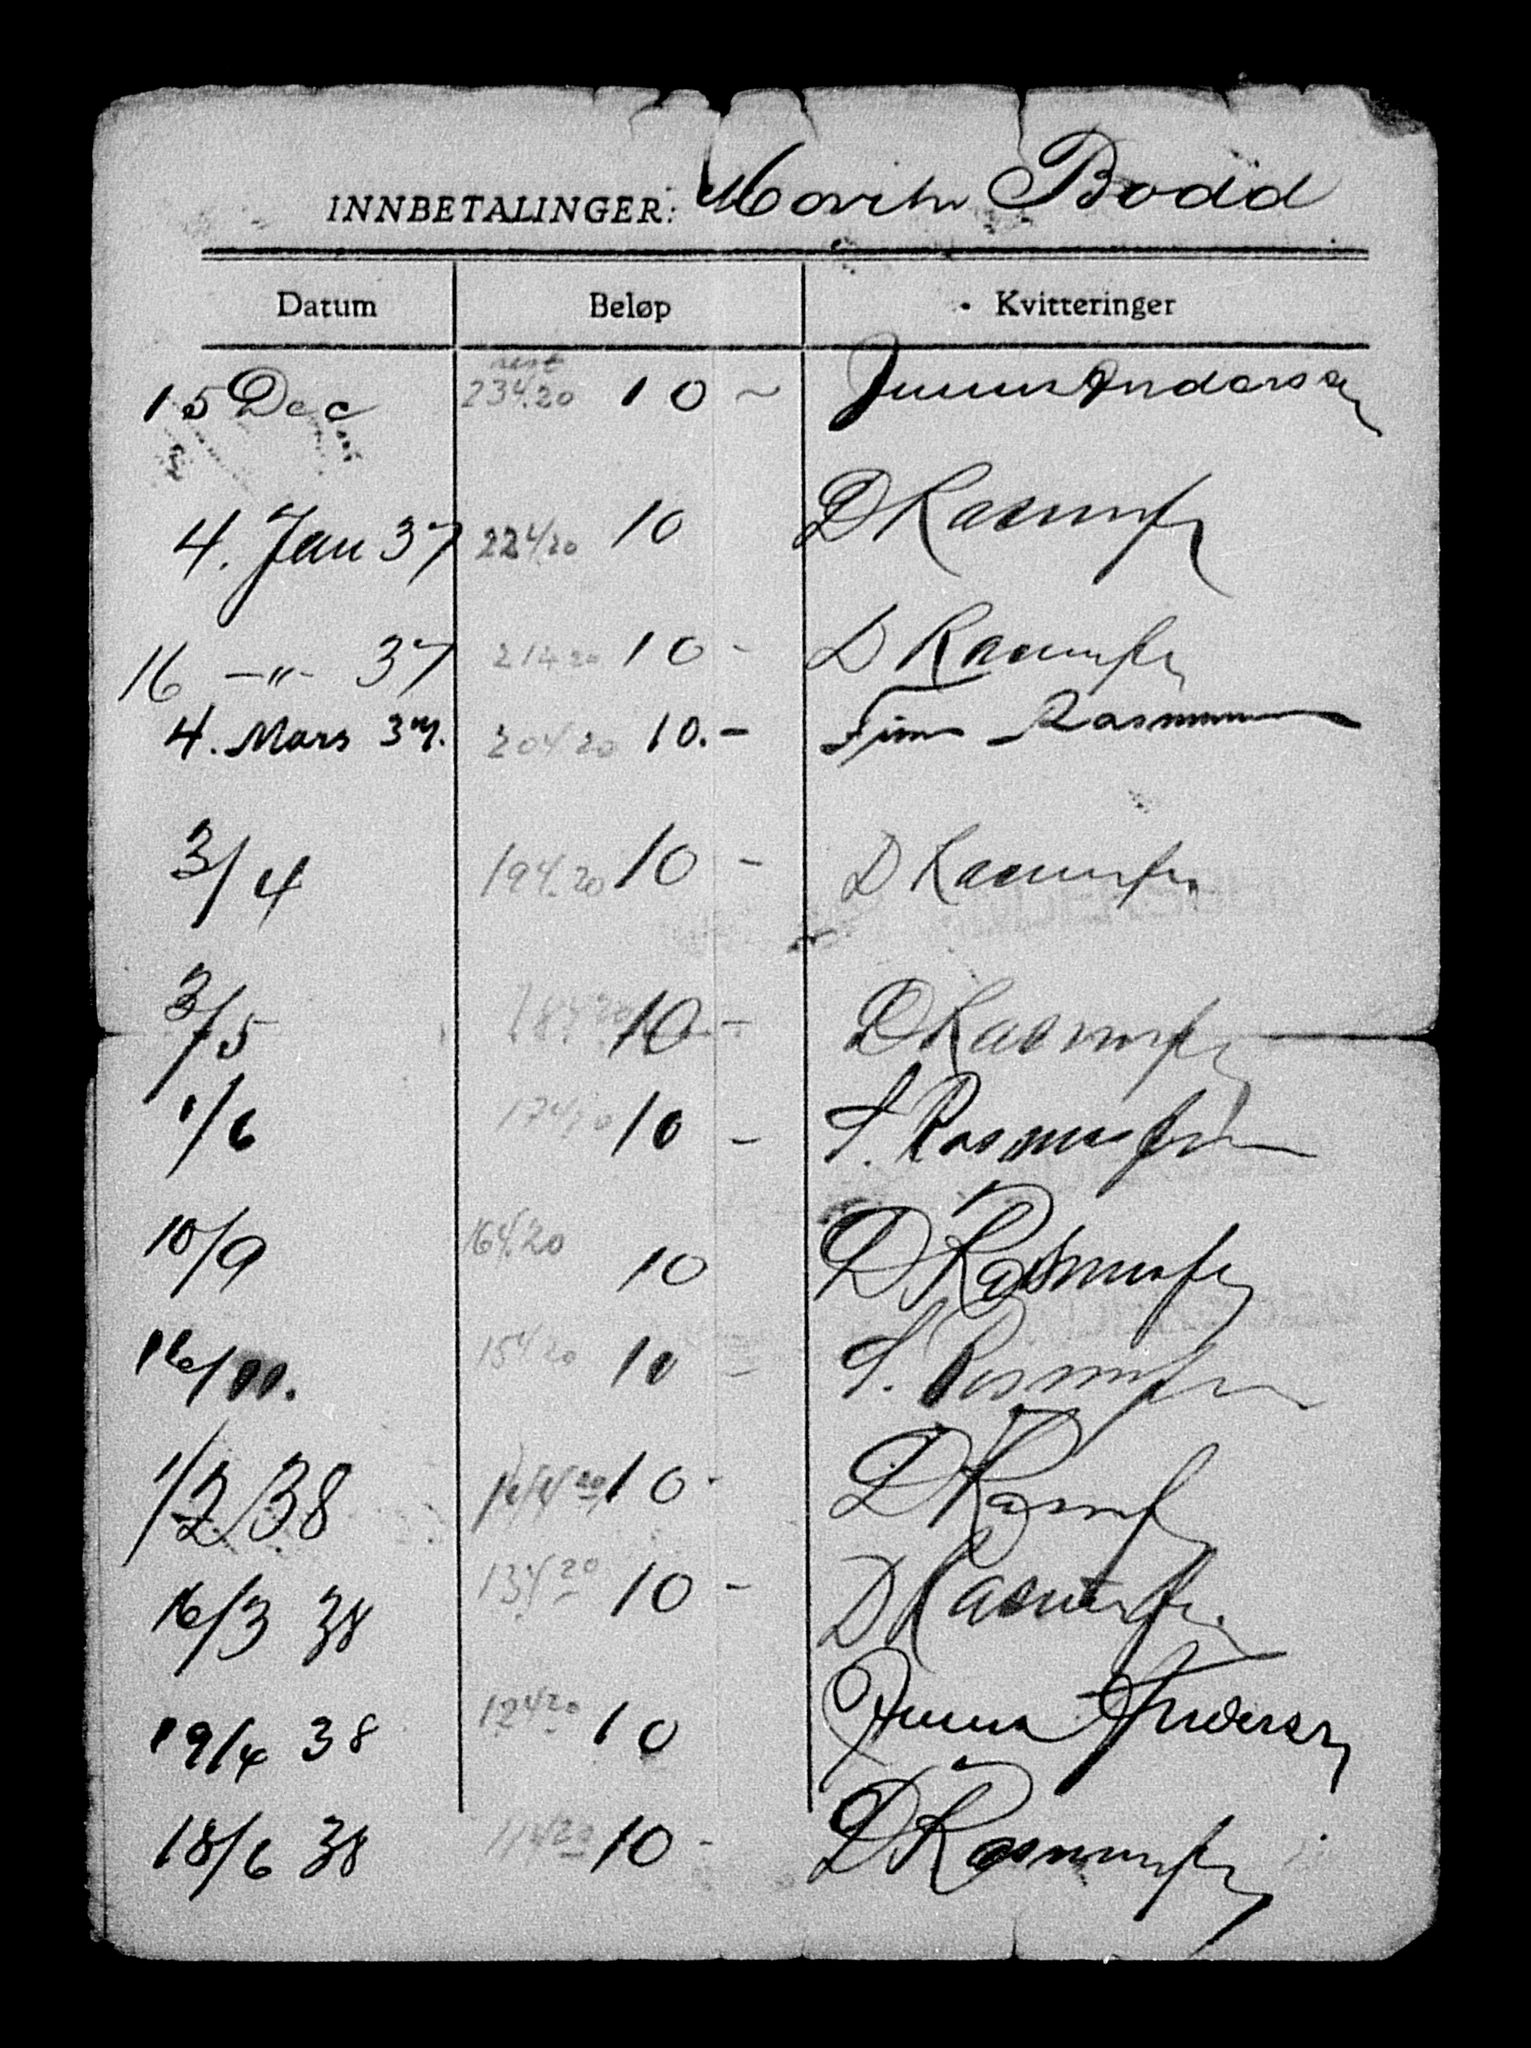 INNBETALINGER: Bodd
Datum Beløp Kvitteringer
rest
15 Dec 234.20 10 ~ Andersen
4. Jan 37 224/20 10 D Rasmussen
16 -"- 37 214 20 10 - D Rasmussen
4. Mars 37. 204/20 10.- Finn Rasmussen
3/4 194.20 10 - D Rasmussen
3/5 184 20 10 - D Rasmussen
1/6 174/20 10 - S. Rasmussen
10/9 164.20 10 D Rasmussen
16/ 154 20 10 - S. Rasmussen
1/2 38 144 20 10 - D Rasmussen
16/3 38 134 20 10 - D Rasmussen
19/4 38 124 20 10 Anna Andersen
18/6 38 114 20 10 - D Rasmussen